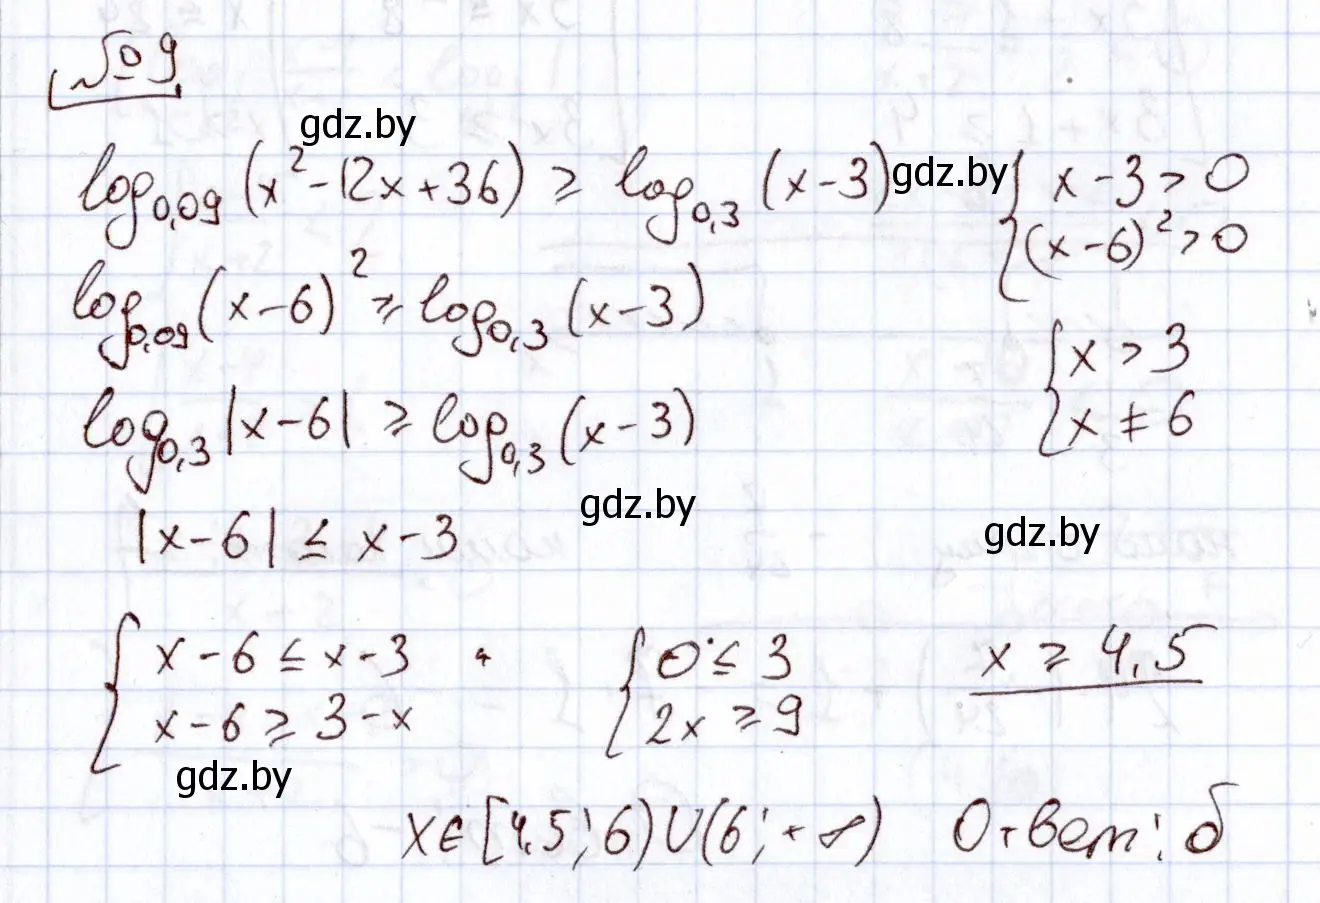 № 9
gdz.by
log₀,₀₉(x² - 12x + 36) ≥ log₀,₃(x - 3) gdz.by { x - 3 > 0
(x - 6)² > 0
log₀,₀₉(x - 6)² ≥ log₀,₃(x - 3)
{ x > 3
x ≠ 6
log₀,₃|x - 6| ≥ log₀,₃(x - 3)
gdz.by
|x - 6| ≤ x - 3 gdz.by
{ x - 6 ≤ x - 3 { 0 ≤ 3 x ≥ 4,5
x - 6 ≥ 3 - x 2x ≥ 9
gdz.by
x ∈ [4,5; 6) ∪ (6; +∞) Ответ: б